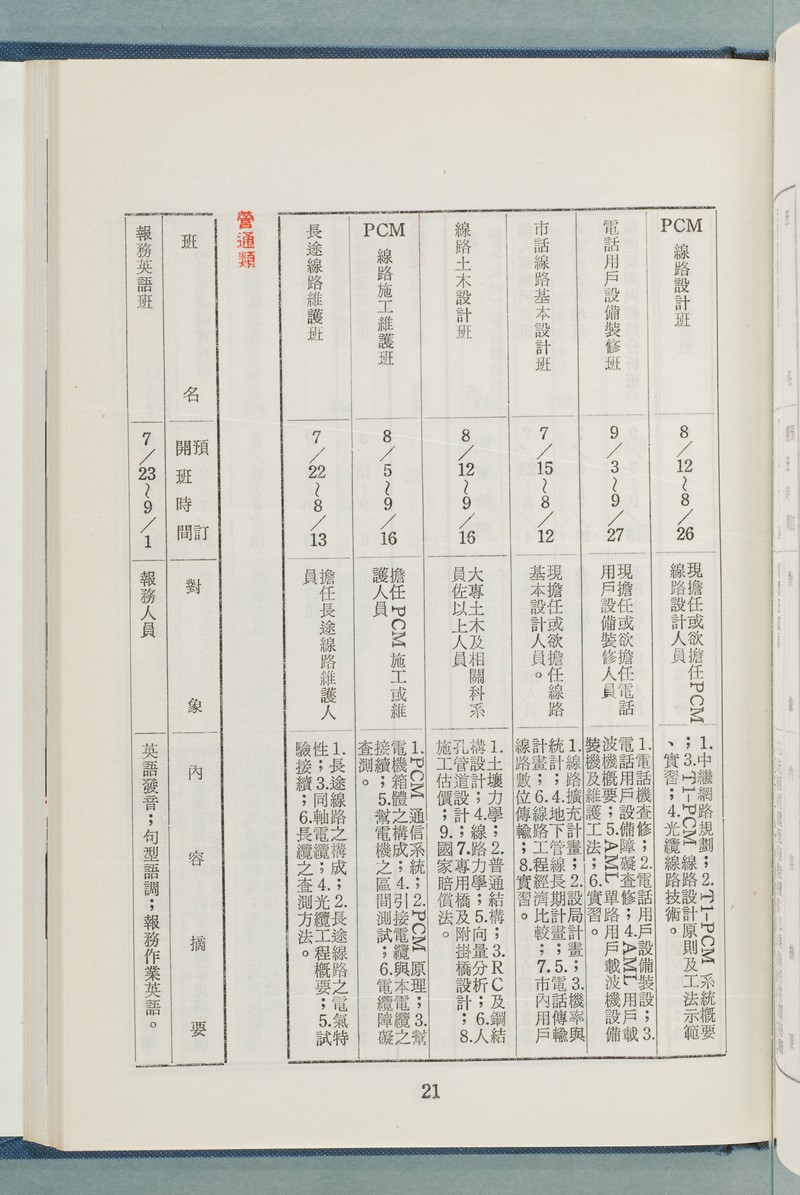 PCM 線路設計班
8/12~8/26
現擔任或欲擔任PCM
線路設計人員
1.中繼網路規劃;2.T1-PCM 系統概要
;3.T1-PCM 線路設計原則及工法示範
、實習;4.光纜線路技術。
電話用戶設備裝修班
9/3~9/27
現擔任或欲擔任電話
用戶設備裝修人員
1.電話機查修;2.電話用戶設備裝設;3.
電話用戶設備障礙查修;4.AML 用戶載
波機概要;5.AML 單路用戶載波機設備
裝機及維護工法;6.實習。
市話線路基本設計班
7/15~8/12
現擔任或欲擔任線路
基本設計人員。
1.線路擴充計畫;2.設局計畫;3.機率與
統計;4.地下管線長期計畫;5.電話傳輸
計畫;6.線路工程經濟比較;7.市內用戶
線路數位傳輸;8.實習。
線路土木設計班
8/12~9/16
大專土木及相關科系
員佐以上人員
1.土壤力學;2.普通結構;3.RC及鋼結
構設計;4.線路力學;5.向量分析;6.人
孔管道設計;7.專用橋及附掛橋設計;8.
施工估價;9.國家賠償法。
PCM 線路施工維護班
8/5~9/16
擔任 PCM 施工或維
護人員
1.PCM 通信系統;2.PCM 原理;3.幫
電機箱體之構成;4.引接電纜與本電纜之
接續;5.幫電機之區間測試;6.電纜障礙
查測。
長途線路維護班
7/22~8/13
擔任長途線路維護人
員
1.長途線路之構成;2.長途線路之電氣特
性;3.同軸電纜;4.光纜工程概要;5.試
驗接續;6.長纜之查測方法。
營通類
班名
預訂
開班時間
對象
內容摘要
報務英語班
7/23~9/1
報務人員
英語發音;句型語調;報務作業英語。
21